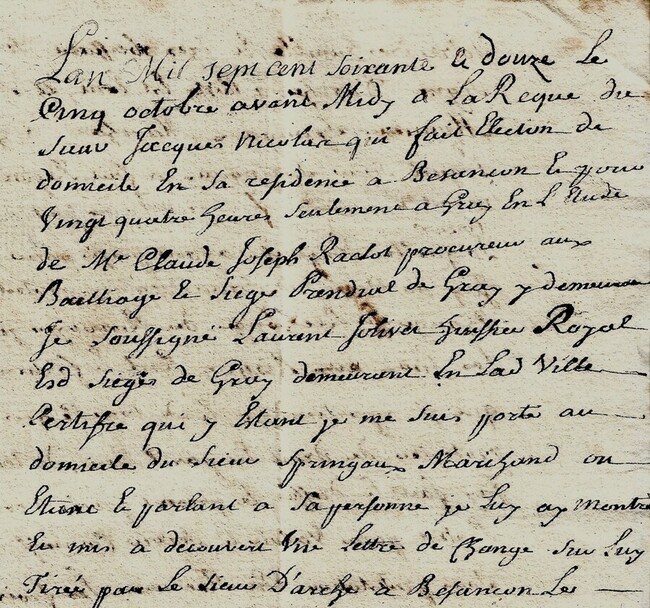 Lan Mil sept cent soixante & douze Le
Cinq octobre avant Midy a La Reque du
sieur Jacques Nicolas qui fait Election de
domicile En sa residence a Besancon & pour
Vingt quatre heures seulement a Gray En L Etude
de Me Claude Joseph Raclot procureur aux
Bailliage & siege Presidial de Gray y demeurant
Je soussigné Laurent Jolivet huissier Royal
Esd sieges de Gray demeurant En Lad Ville
Certifie qui y Etant je me suis porté au
domicile du sieur Springaux Marchand ou
Etant & parlant a sa personne je Luy ay montré
& mis a decouvert Une Lettre de Change sur Luy
Tirée par Le sieur D'arche a Besancon Le